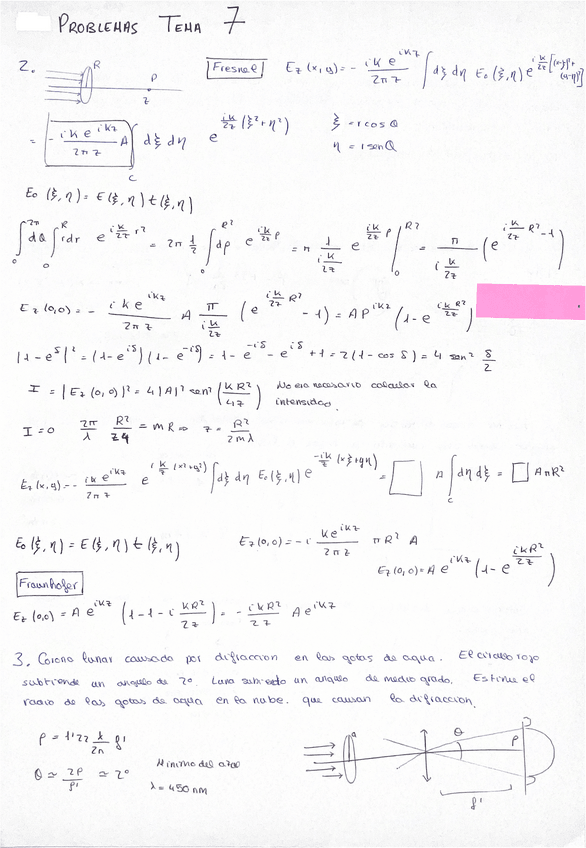 PROBLEMAS TEMA 7
2. R P z Fresnel E_z(x,y) = - i k e^{ikz} / 2πz ∫ dξ dη E_0(ξ,η) e^{i k/2z [(x-ξ)² + (y-η)²]}
= - i k e^{ikz} / 2πz A ∫_C dξ dη e^{ik/2z (ξ²+η²)} ξ = r cos θ
η = r sen θ
E_0(ξ,η) = E(ξ,η) t(ξ,η)
∫_0^{2π} dθ ∫_0^R r dr e^{i k/2z r²} = 2π 1/2 ∫_0^{R²} dρ e^{i k/2z ρ} = π 1/(i k/2z) e^{i k/2z ρ} |_0^{R²} = π/(i k/2z) (e^{i k/2z R²} - 1)
E_z(0,0) = - i k e^{ikz} / 2πz A π/(i k/2z) (e^{i k/2z R²} - 1) = A e^{ikz} (1 - e^{i k R²/2z})
|1 - e^{iδ}|² = (1 - e^{iδ})(1 - e^{-iδ}) = 1 - e^{-iδ} - e^{iδ} + 1 = 2(1 - cos δ) = 4 sen² δ/2
I = |E_z(0,0)|² = 4|A|² sen² (kR²/4z) No era necesario calcular la
intensidad.
I = 0 2π/λ R²/z4 = mπ ⇒ z = R²/2mλ
E_z(x,y) = - i k e^{ikz} / 2πz e^{i k/z (x²+y²)} ∫ dξ dη E_0(ξ,η) e^{-i k/z (xξ+yη)} = □ A ∫_C dη dξ = □ AπR²
E_0(ξ,η) = E(ξ,η) t(ξ,η) E_z(0,0) = - i k e^{ikz} / 2πz πR² A
E_z(0,0) = A e^{ikz} (1 - e^{ikR²/2z})
Fraunhofer
E_z(0,0) = A e^{ikz} (1 - 1 - i kR²/2z) = - ikR²/2z A e^{ikz}
3. Corona lunar causado por difraccion en las gotas de agua. El circulo rojo
subtiende un angulo de 2º. Luna subtiende un angulo de medio grado. Estime el
radio de las gotas de agua en la nube. que causan la difraccion.
ρ = 1'22 λ/2a f'
θ ≃ 2ρ/f' ≃ 2º Minimo del azul
λ = 450 nm
a θ ρ f'